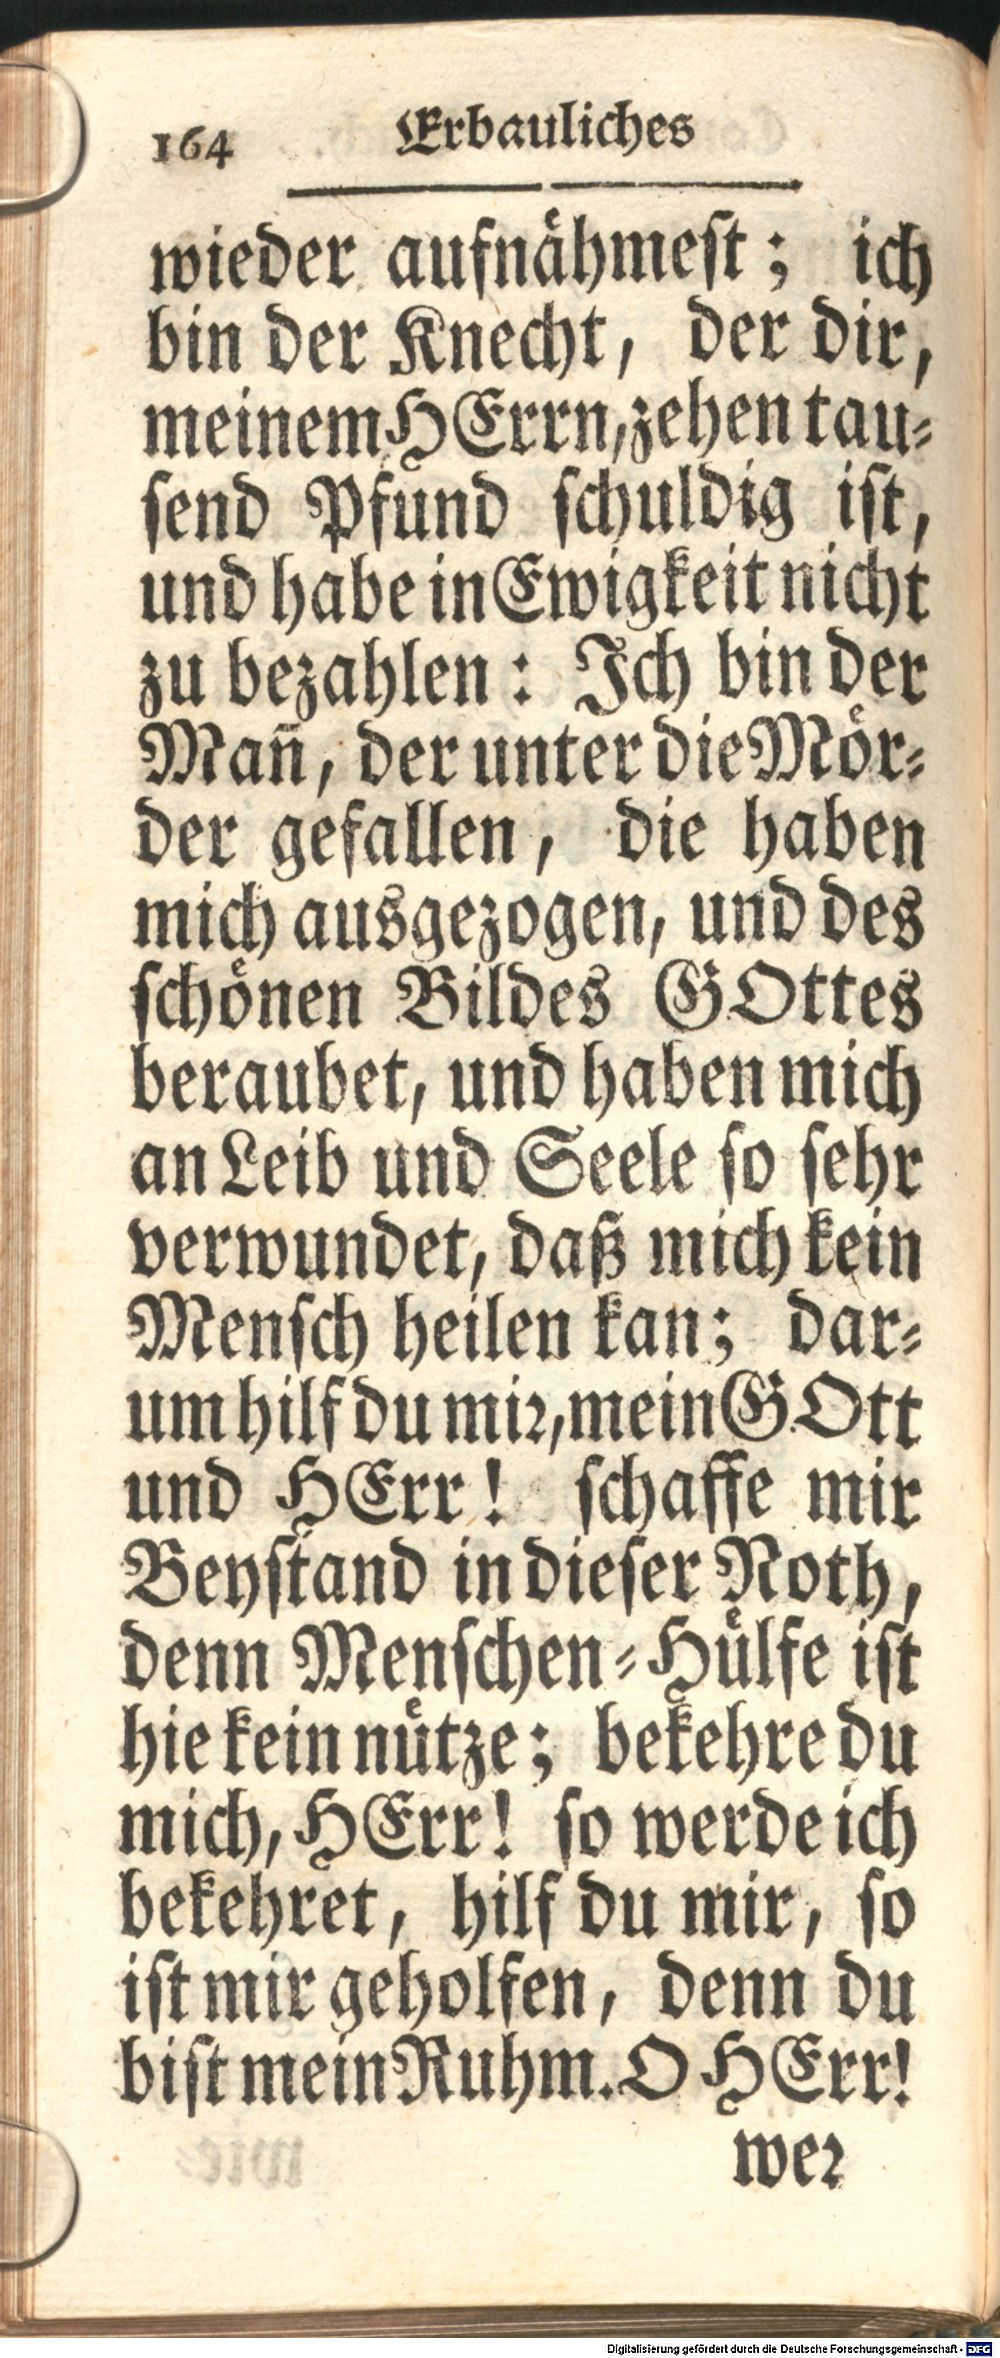 164 Erbauliches
wieder aufnåhmeſt; ich
bin der Knecht, der dir,
meinem HErrn, zehen tau⸗
ſend Pfund ſchuldig iſt,
und habe in Ewigkeit nicht
zu bezahlen: Ich bin der
Mañ, der unter die Moͤr⸗
der gefallen, die haben
mich ausgezogen, und des
ſchoͤnen Bildes GOttes
beraubet, und haben mich
an Leib und Seele ſo ſehr
verwundet, daß mich kein
Menſch heilen kan; dar⸗
um hilf du miꝛ, mein GOtt
und HErr! ſchaffe mir
Beyſtand in dieſer Noth,
denn Menſchen⸗Huͤlfe iſt
hie kein nuͤtze; bekehre du
mich, HErr! ſo werde ich
bekehret, hilf du mir, ſo
iſt mir geholfen, denn du
biſt mein Ruhm. O HErr!
weꝛ
Digitalisierung gefördert durch die Deutsche Forschungsgemeinschaft - DFG